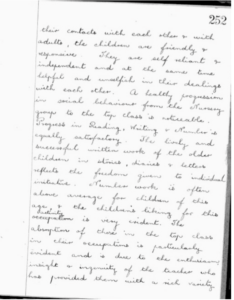 252
their contacts with each other & with
adults, the children are friendly &
responsive. They are self reliant &
independent and at the same time
helpful and unselfish in their dealings
with each other. A healthy progression
in social behaviour from the Nursery
group to the top class is noticeable.
Progress in Reading, Writing & Number is
equally satisfactory. The lively and
successful written work of the older
children in stories, diaries & letters
reflects the freedom given to individual
initiative. Number work is often
above average for children of this
age, & the children's liking for this
occupation is very evident. The
absorption of those in the top class
in their occupations is particularly
evident and is due to the enthusiasm,
insight & ingenuity of the teacher who
has provided them with a rich variety